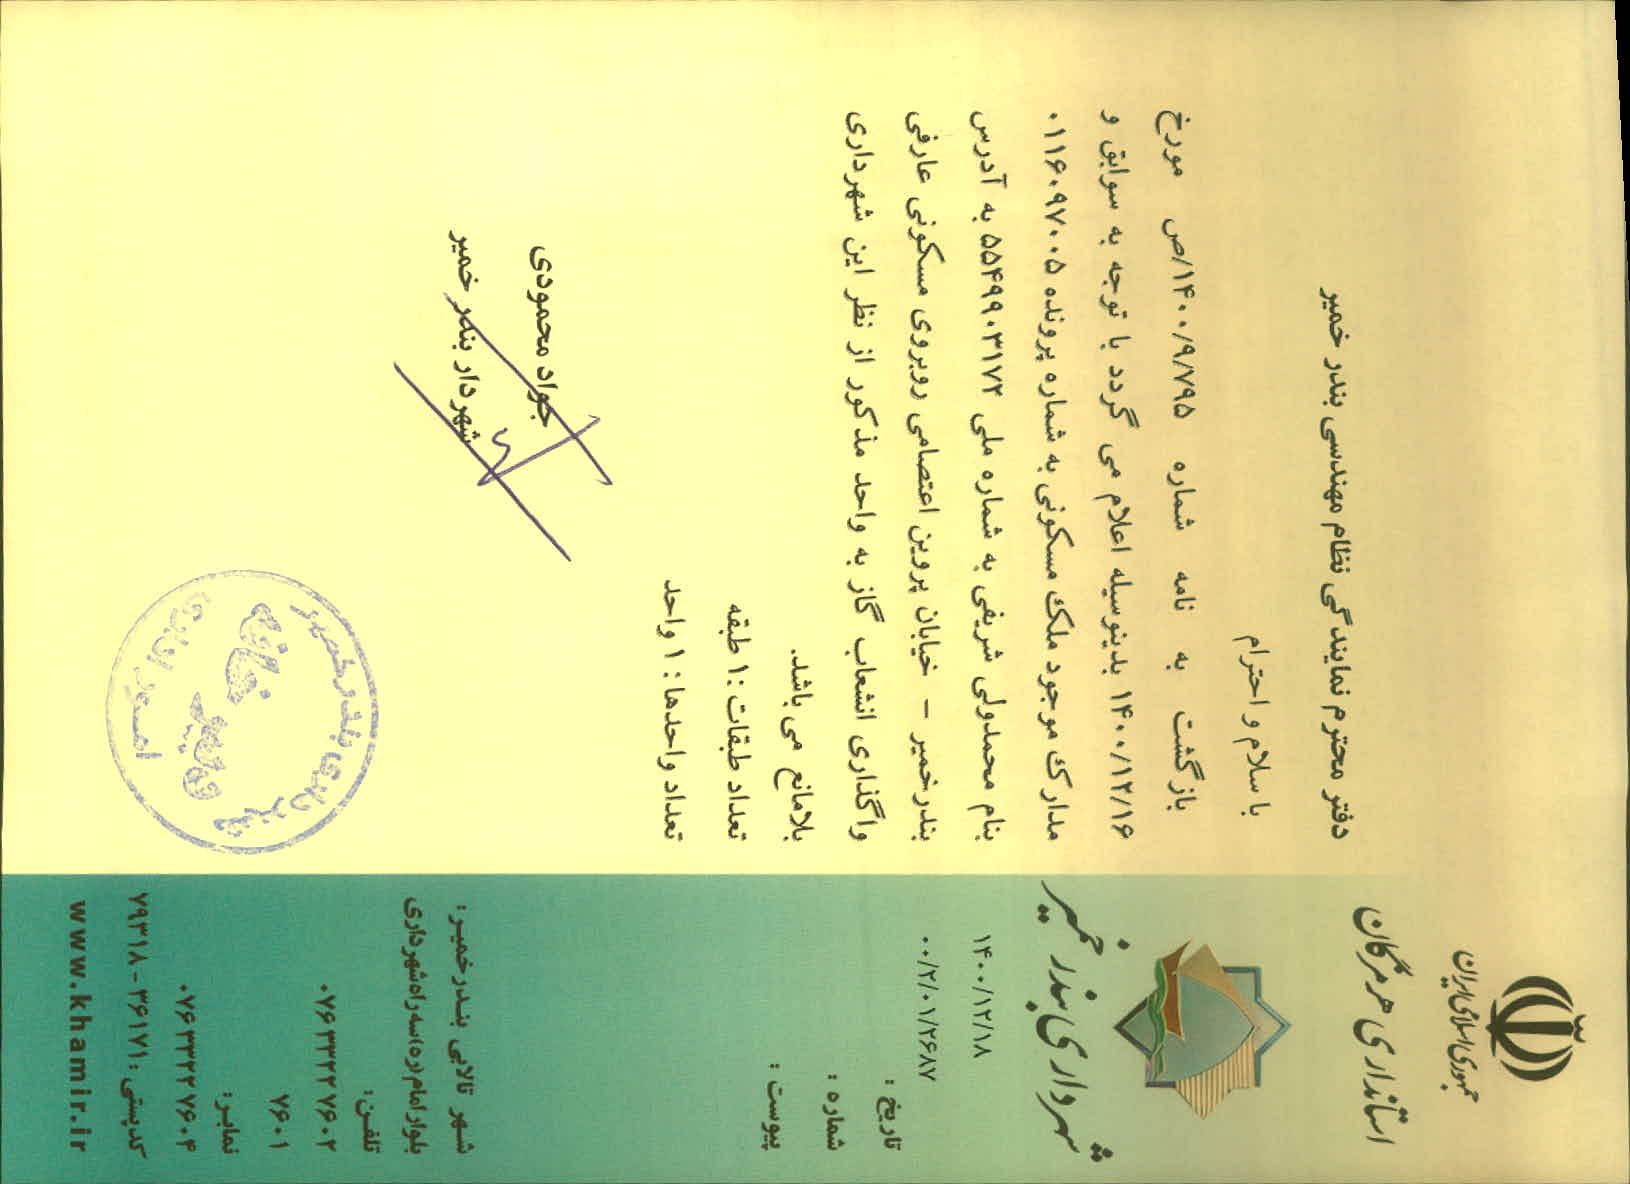 جمهوری اسلامی ایران
استانداری هرمزگان
شهرداری بندر خمیر
۱۴۰۰/۱۲/۱۸
۰۰/۲/۰۱/۲۶۸۷
تاریخ :
شماره :
پیوست :
دفتر محترم نمایندگی نظام مهندسی بندر خمیر
با سلام و احترام
بازگشت به نامه شماره ۱۴۰۰/۹/۷۹۵/ص مورخ
۱۴۰۰/۱۲/۱۶ بدینوسیله اعلام می گردد با توجه به سوابق و
مدارک موجود ملک مسکونی به شماره پرونده ۰۱۱۶۰۹۷۰۰۵
بنام محمدولی شریفی به شماره ملی ۵۵۴۹۹۰۳۱۷۲ به آدرس
بندرخمیر – خیابان پروین اعتصامی روبروی مسکونی عارفی
واگذاری انشعاب گاز به واحد مذکور از نظر این شهرداری
بلامانع می باشد.
تعداد طبقات :۱ طبقه
تعداد واحدها : ۱ واحد
جواد محمودی
شهردار بندر خمیر
شهرداری بندر خمیر
شهر تالابی بندرخمیر:
بلوار امام (ره) سه راه شهرداری
تلفن:
۰۷۶۳۳۲۲۷۶۰۲
۷۶۰۱
نمابر:
۰۷۶۳۳۲۲۷۶۰۴
کدپستی : ۳۶۱۷۱ - ۷۹۳۱۸
www.khamir.ir